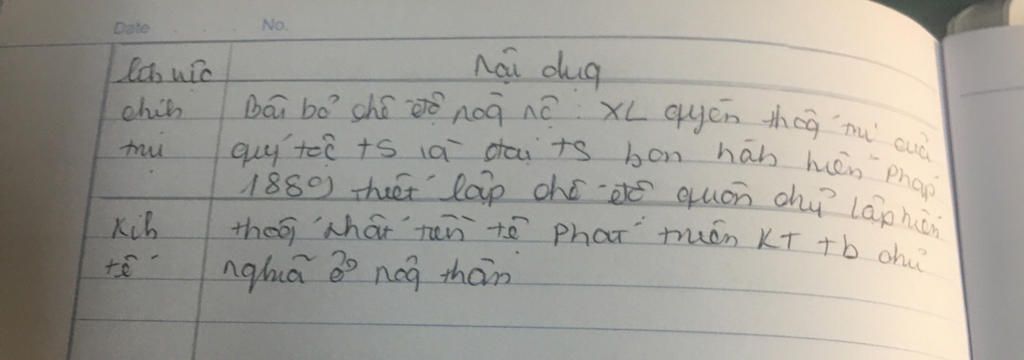 Date No.
lĩnh vực Nội dug
chíh Bãi bỏ chế độ nog nô: XL quyền thog trị của
trị quý tộc ts và đại ts ban hàh hiến pháp
1889) thiết lập chế độ quân chủ lập hiến
Kih thog nhất tiền tệ phát triển KT tb chủ
tế nghĩa ở nog thôn